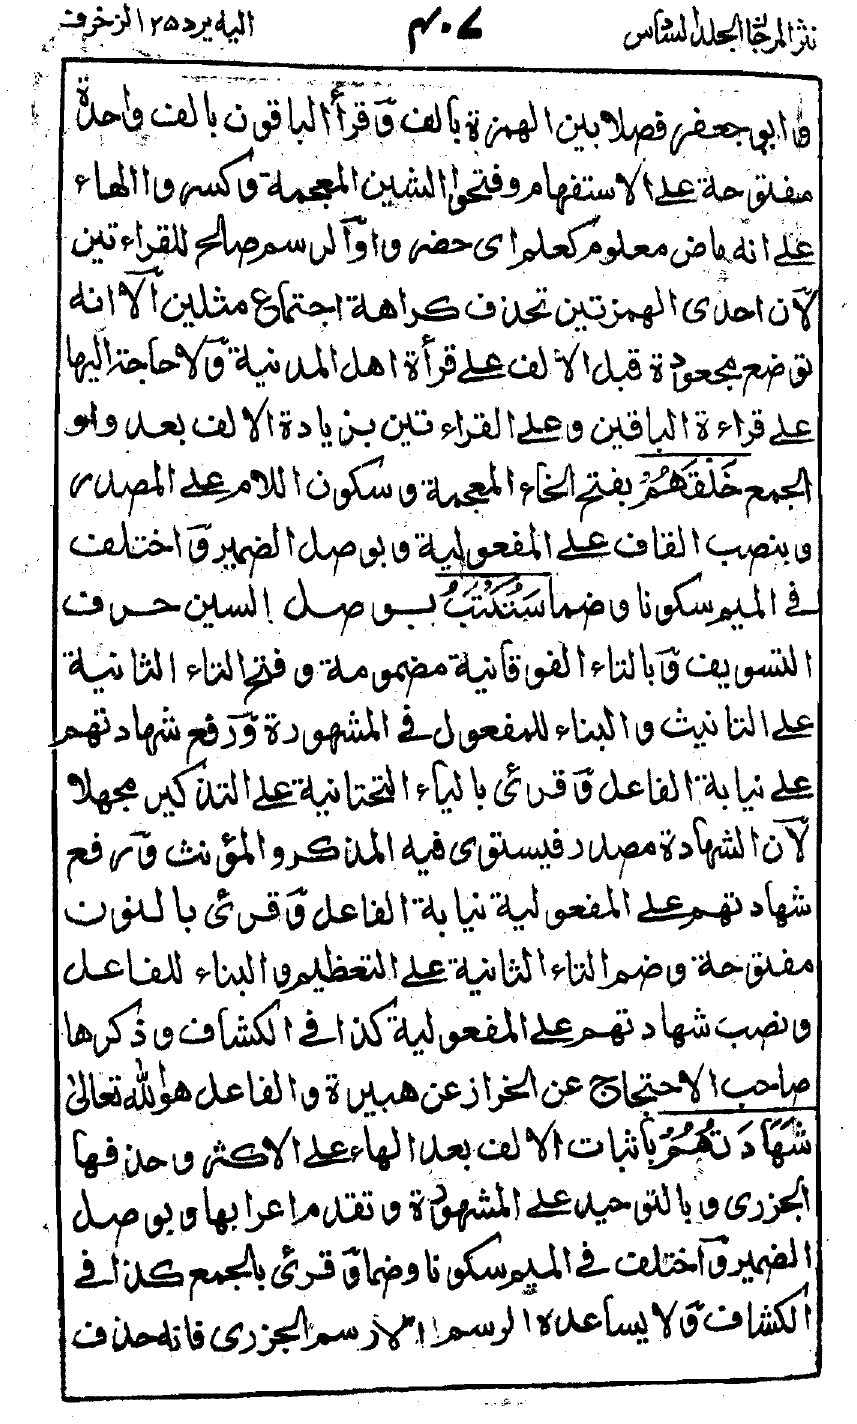 نثر المرجان الجلد السادس ۴۰۷ اليه يرد ۲۵ الزخرف
وابو جعفر فصلا بين الهمزة بالف وقرأ الباقون بالف واحدة
مفتوحة على الاستفهام وفتحوا الشين المعجمة وكسروا الهاء
على انه ماض معلوم كعلم اى حضروا والرسم صالح للقراءتين
لان احدى الهمزتين تحذف كراهة اجتماع مثلين الا انه
توضع مجعودة قبل الالف على قرأة اهل المدنية ولا حاجة اليها
على قراءة الباقين وعلى القراءتين بزيادة الالف بعد واو
الجمع خَلْقَهُمْ بفتح الخاء المعجمة وسكون اللام على المصدر
وبنصب القاف على المفعولية وبوصل الضمير واختلف
فى الميم سكونا وضما سَتُكْتَبُ بوصل السين حرف
التسويف وبالتاء الفوقانية مضمومة وفتح التاء الثانية
على التانيث والبناء للمفعول فى المشهورة ورفع شهادتهم
على نيابة الفاعل وقرئ بالياء التحتانية على التذكير مجهلا
لان الشهادة مصدر فيستوى فيه المذكر والمؤنث ورفع
شهادتهم على المفعولية نيابة الفاعل وقرئ بالنون
مفتوحة وضم التاء الثانية على التعظيم والبناء للفاعل
ونصب شهادتهم على المفعولية كذا فى الكشاف وذكرها
صاحب الاحتجاج عن الخراز عن هبيرة والفاعل هو الله تعالى
شَهَادَتُهُمْ باثبات الالف بعد الهاء على الاكثر وحذفها
الجزرى وبالتوحيد على المشهودة وتقدم اعرابها وبوصل
الضمير واختلف فى الميم سكونا وضما وقرئ بالجمع كذا فى
الكشاف ولا يساعده الرسم الا رسم الجزرى فانه حذف